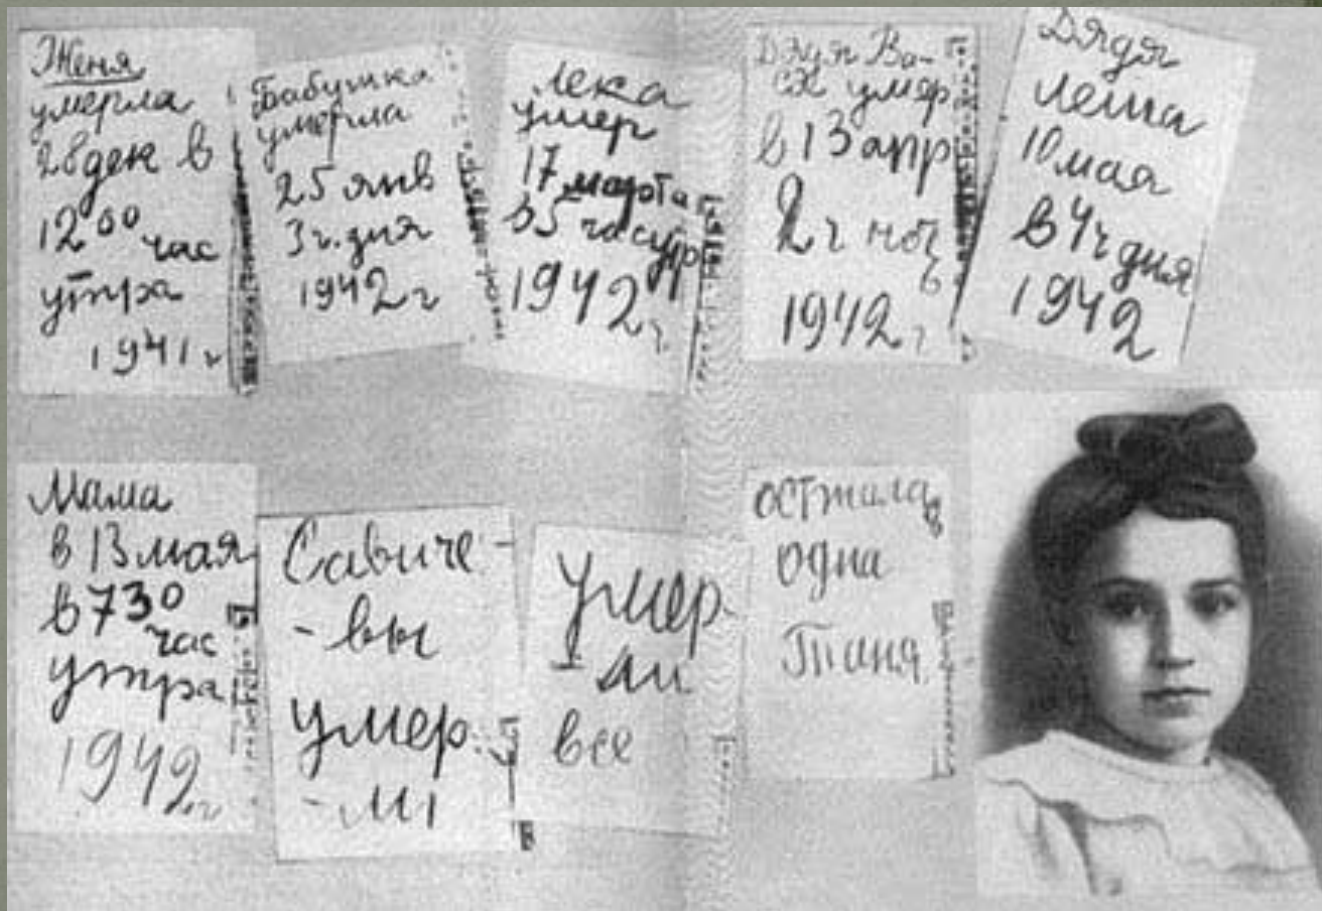 Женя
умерла
28 дек в
12 00 час
утра
1941 г
Бабушка
умерла
25 янв
3 ч. дня
1942 г
Лека
умер
17 марта
в 5 час утр
1942 г
Дядя Ва-
ся умер
в 13 апр
2 ч ноч
1942 г
Дядя
Леша
10 мая
в 4 ч дня
1942
Мама
в 13 мая
в 7 30
час
утра
1942 г
Савиче-
-вы
умер-
-ли
умер-
-ли
все
осталась
одна
Таня